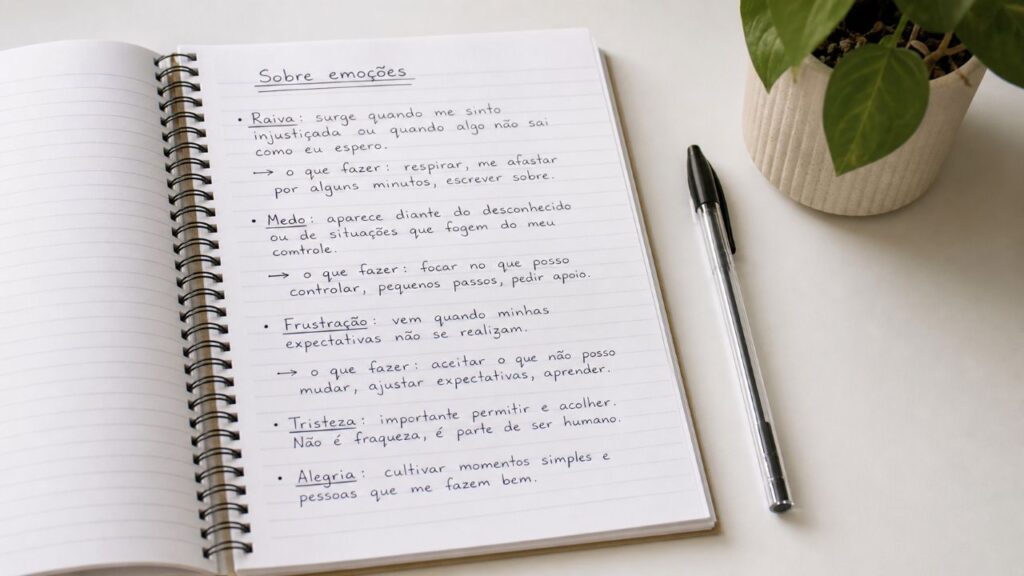 Sobre emoções
• Raiva: surge quando me sinto
injustiçada ou quando algo não sai
como eu espero.
→ o que fazer: respirar, me afastar
por alguns minutos, escrever sobre.
• Medo: aparece diante do desconhecido
ou de situações que fogem do meu
comtrole.
→ o que fazer: focar no que posso
controlar, pequenos passos, pedir apoio.
• Frustração: vem quando minhas
expectativas não se realizam.
→ o que fazer: aceitar o que não posso
mudar, ajustar expectativas, aprender.
• Tristeza: importante permitir e acolher.
Não é fraqueza, é parte de ser humano.
• Alegria: cultivar momentos simples e
pessoas que me fazem bem.